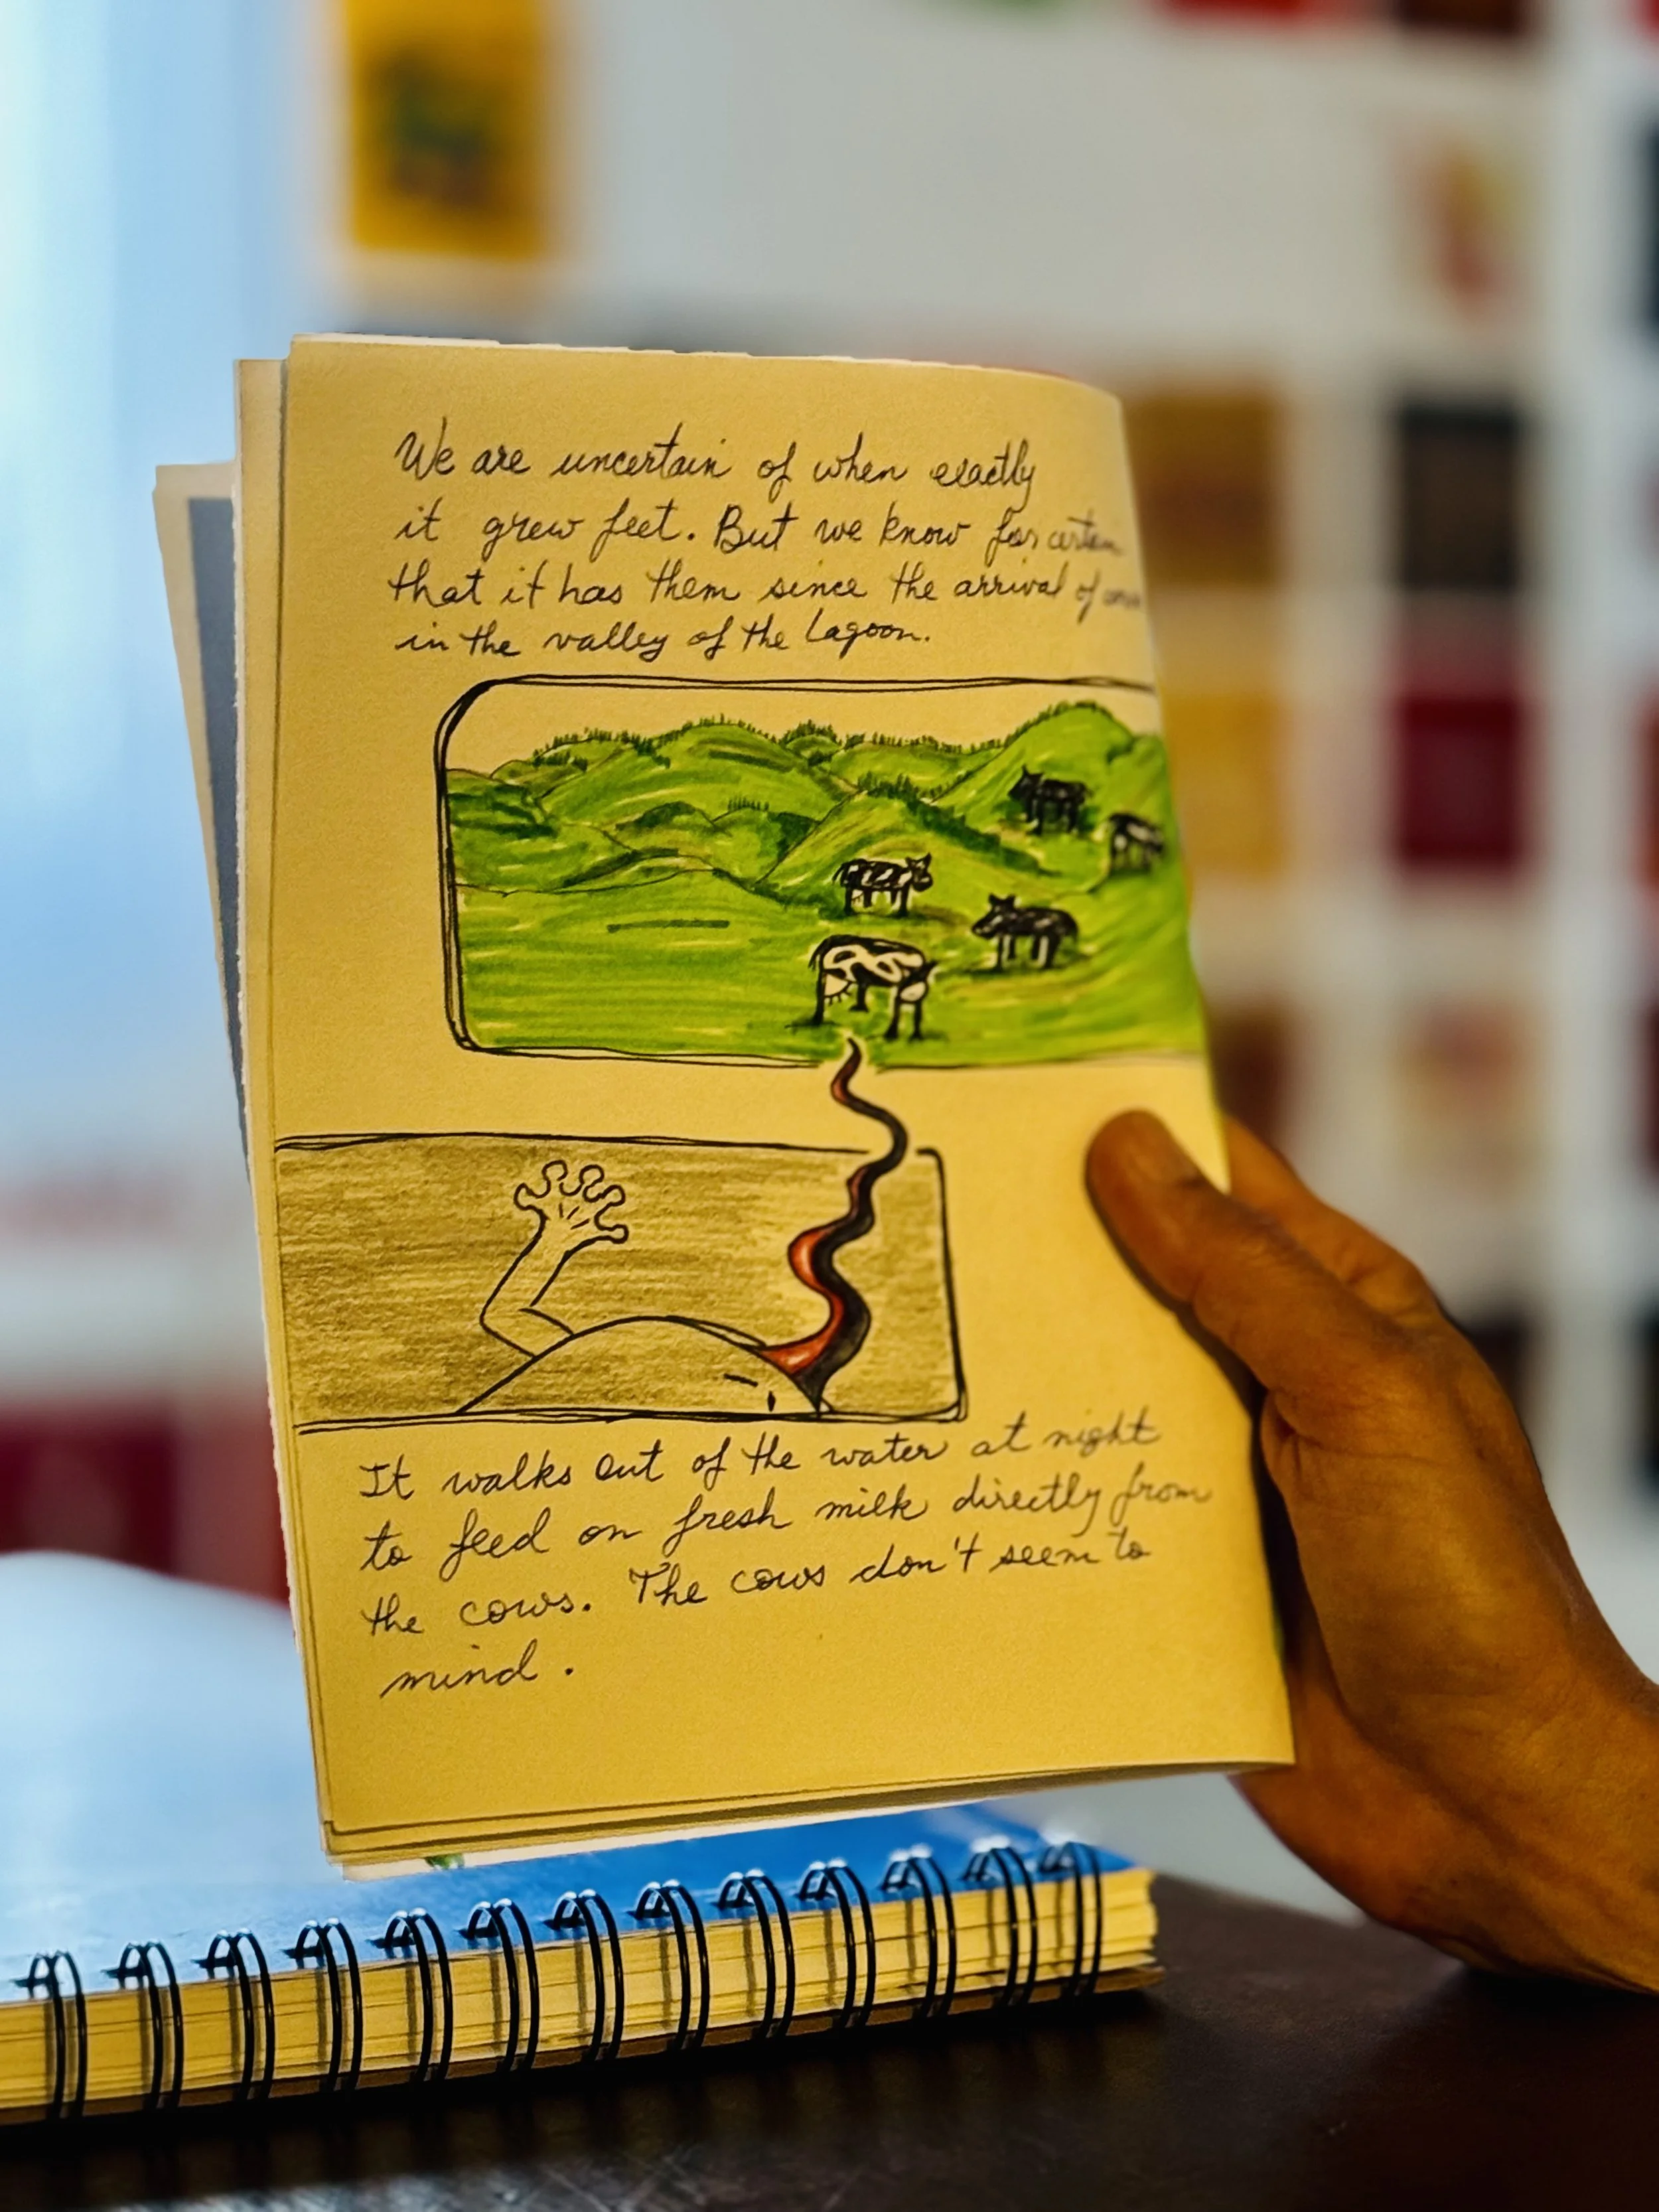 We are uncertain of when exactly
it grew feet. But we know for certain
that it has them since the arrival of cows
in the valley of the Lagoon.
It walks out of the water at night
to feed on fresh milk directly from
the cows. The cows don't seem to
mind.